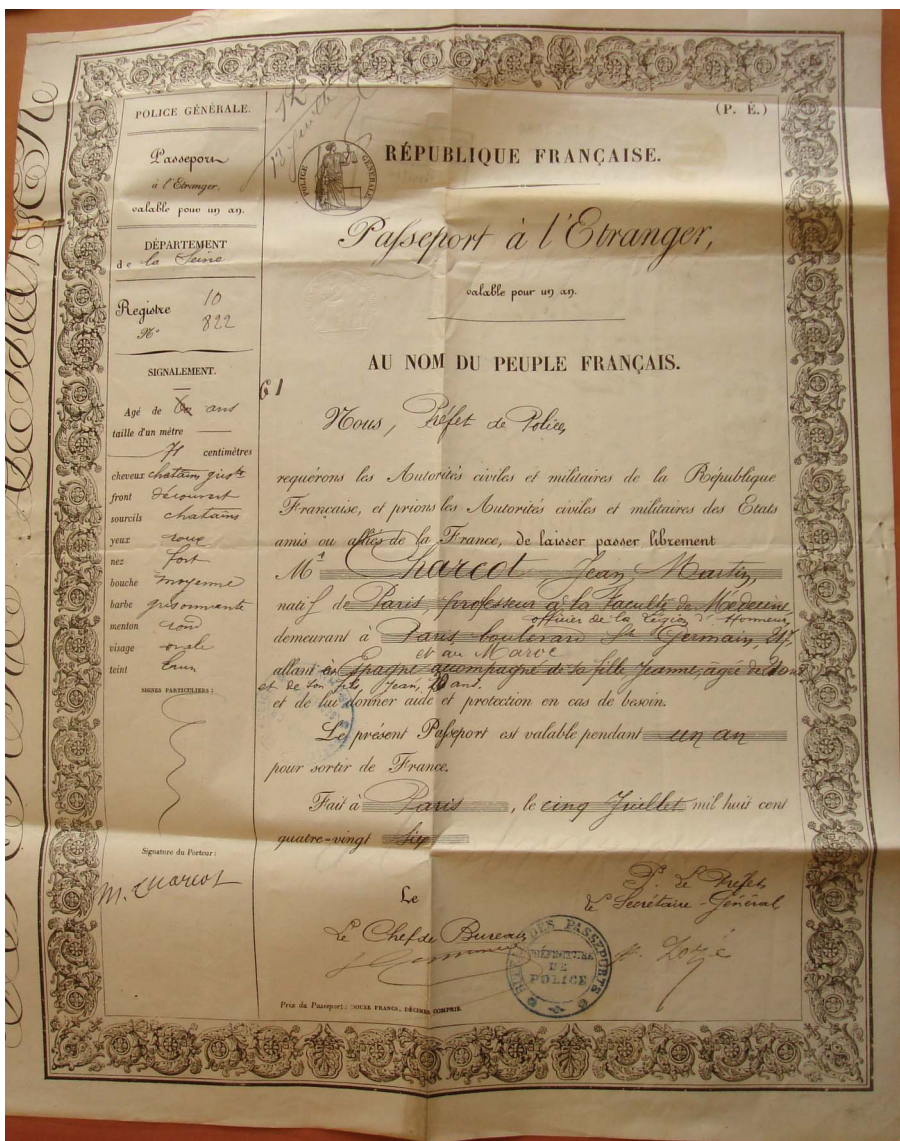 POLICE GÉNÉRALE.
Passeport
à l'Etranger,
valable pour un an.
DÉPARTEMENT
de la Seine
Registre 10
N° 822
SIGNALEMENT.
61
Agé de ans
taille d'un mètre
71 centimètres
cheveux chatains
front découvert
sourcils chatains
yeux
nez fort
bouche moyenne
barbe grisonnante
menton rond
visage ovale
teint brun
SIGNES PARTICULIERS :
Signature du Porteur :
M. Charcot
(P. É.)
12
13 juillet
POLICE GÉNÉRALE
RÉPUBLIQUE FRANÇAISE.
Passeport à l'Etranger,
valable pour un an.
AU NOM DU PEUPLE FRANÇAIS.
Nous, Préfet de Police,
requérons les Autorités civiles et militaires de la République
Française, et prions les Autorités civiles et militaires des Etats
amis ou alliés de la France, de laisser passer librement
Mr Charcot Jean Martin,
natif de Paris, professeur à la Faculté de Médecine,
officier de la Légion d'Honneur,
demeurant à Paris boulevard St Germain, 217,
et au Maroc
allant en Espagne accompagné de sa fille Jeanne, agée de
et de son fils, Jean, ans.
et de lui donner aide et protection en cas de besoin.
Le présent Passeport est valable pendant un an
pour sortir de France.
Fait à Paris, le cinq Juillet mil huit cent
quatre-vingt six
P. le Préfet,
Le
le Secrétaire-Général
Le Chef de Bureau
BUREAU DES PASSEPORTS
PRÉFECTURE
DE
POLICE
Prix du Passeport : DOUZE FRANCS, DÉCIMES COMPRIS.